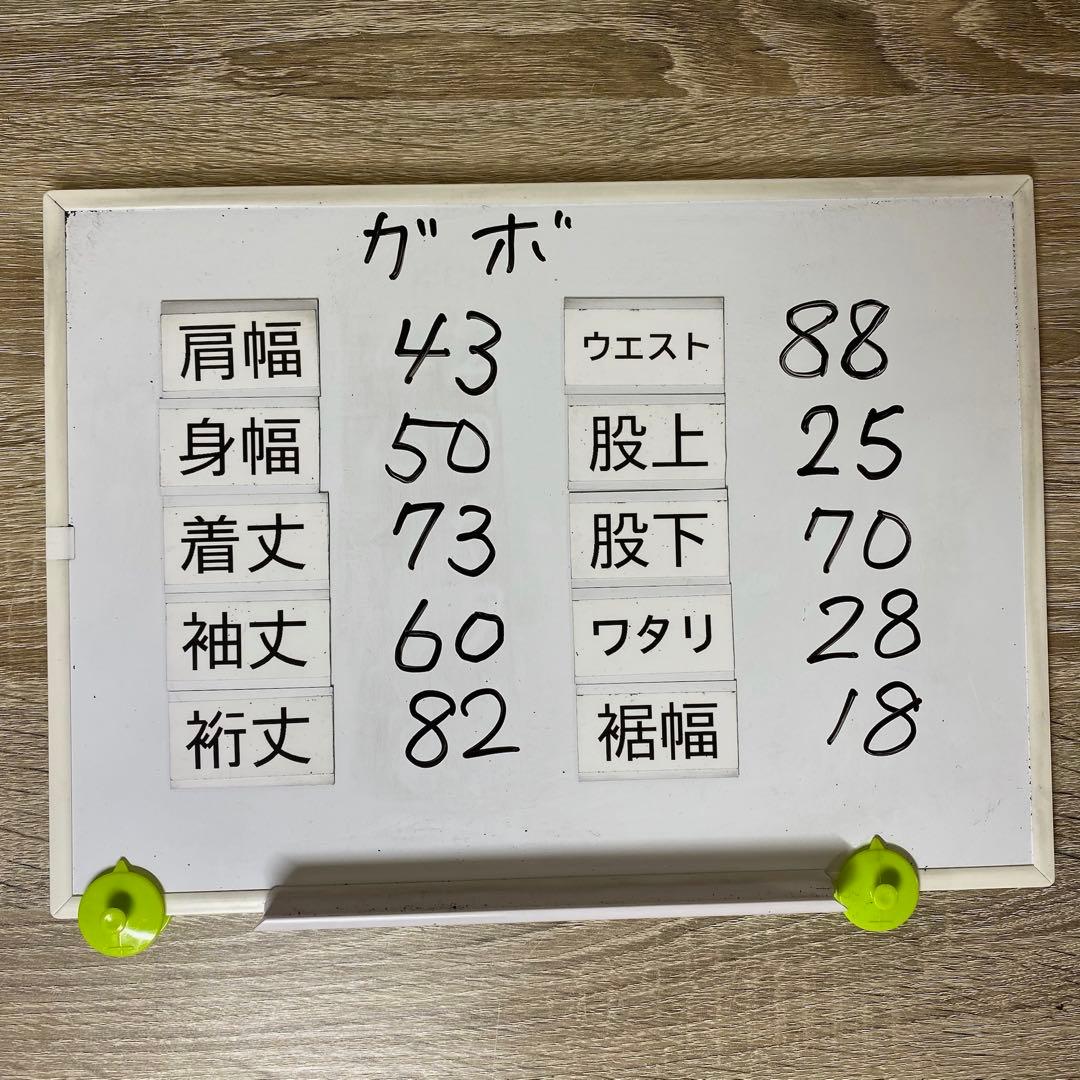 ガボ
肩幅 43 ウエスト 88
身幅 50 股上 25
着丈 73 股下 70
袖丈 60 ワタリ 28
裄丈 82 裾幅 18